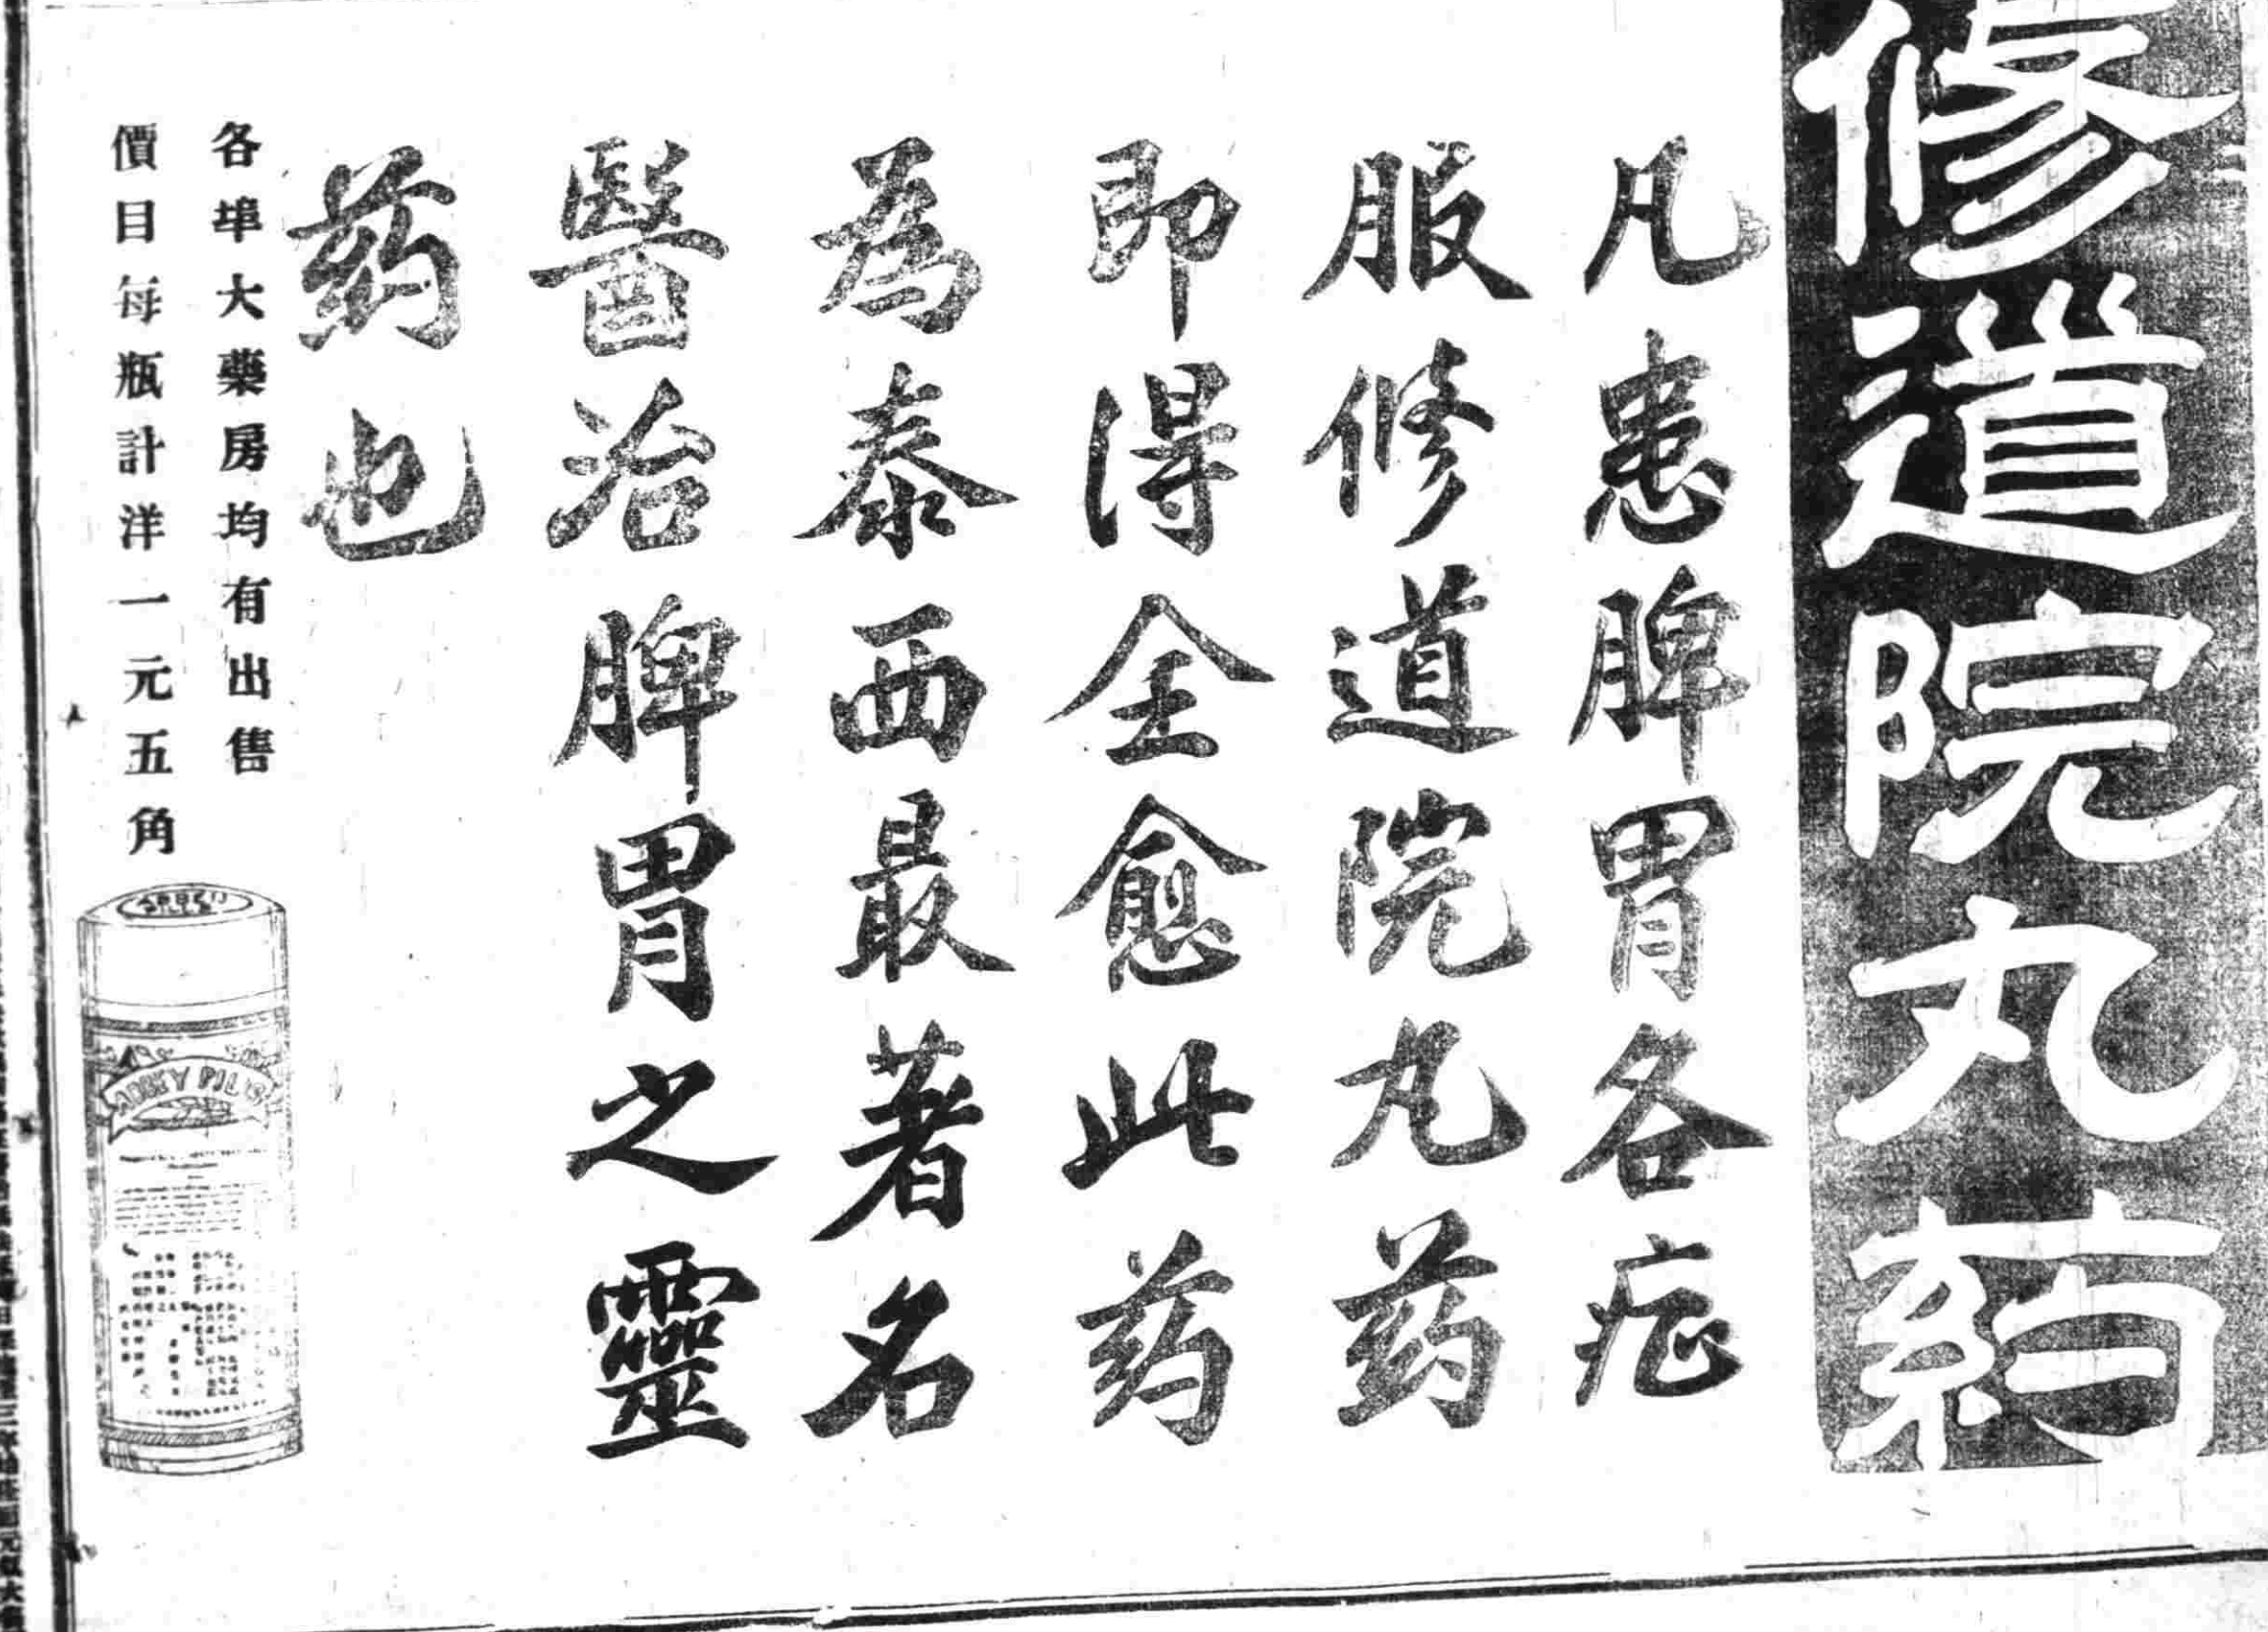 修道院丸葯
凡患脾胃各症
服修道院丸葯
即得全愈此葯
為泰西最著名
醫治脾胃之靈
葯也
各埠大藥房均有出售
價目每瓶計洋一元五角
ABBEY PILLS
ABBEY PILLS